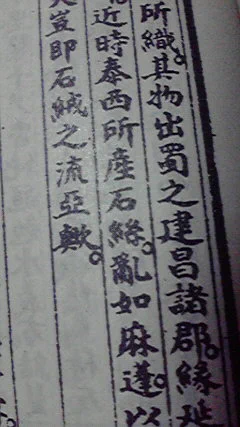 所織。其物出蜀之建昌諸郡。緣延
近時泰西所產石絲。亂如麻蓬。以
豈即石絨之流亞歟。